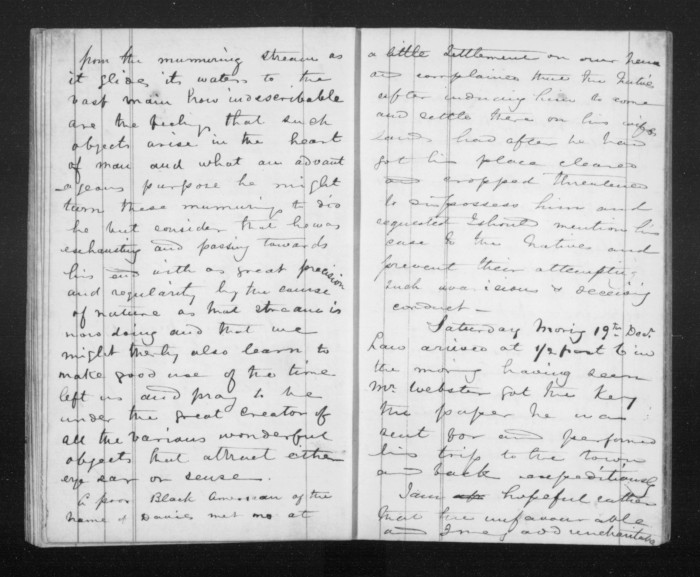 from the murmuring stream as
it glides its waters to the
vast main how indescribable
are the feelings that such
objects arise in the heart
of man and what an advant
ageous purpose he might
turn these murmuring to did
he but consider that he was
exhausting and passing towards
his end with as great precision
and regularity by the course
of nature as that stream is
now doing and that we
might therby also learn to
make good use of the time
left us and pray to be
under the great Creator of
all the various wonderful
objects that attract either
eye ear or sense.
A poor Black American of the
name of Davies met me at
a little Settlement on our
and complained that the Natives
after inducing him to come
and settle there on his
had after he had
got his place cleared
and cropped threatened
to dispossess him and
requested I should mention his
case to the Natives and
prevent their attempting
such avaricious & deceiving
conduct —
Saturday Morng 19th Decr.
Law arrived at 1/2 past 6 in
the morng having seen
Mr. Webster got the Key
the paper he was
sent for and performed
his trip to the town
and back expeditiously
I am hopeful rather
that his unfavourable
and I may add uncharitable